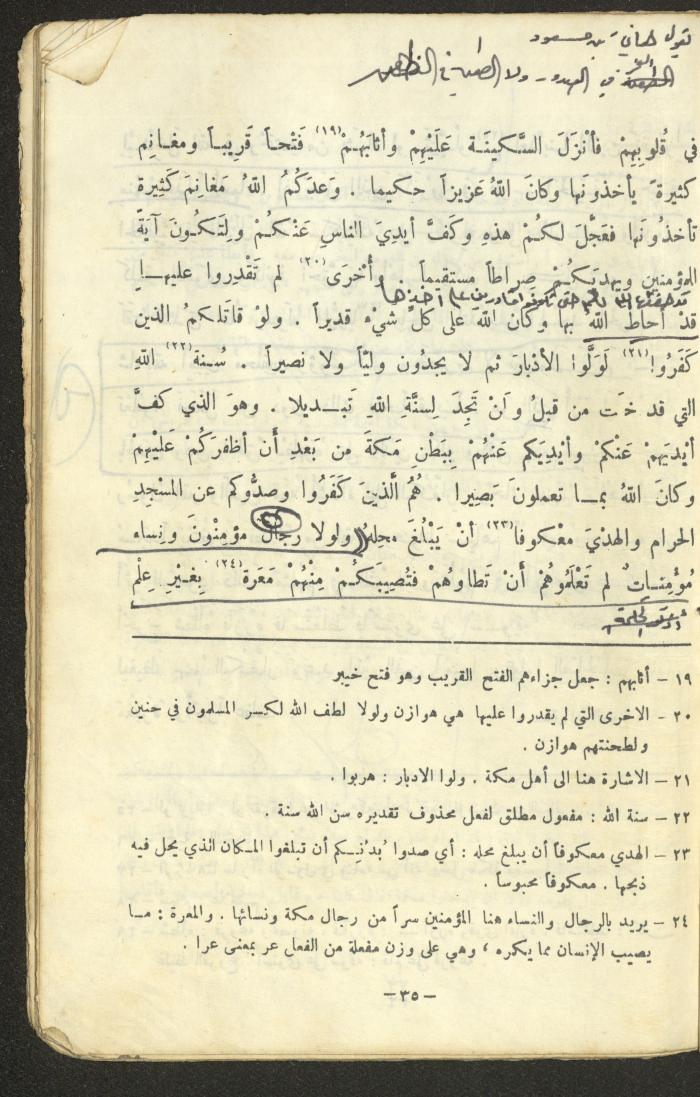 في قُلوبِهِمْ فأنْزَلَ السَّكينَة عَلَيْهِمْ وأثابَهُمْ(١٩) فَتْحاً قَريباً ومغانِم
كثيرة يأخذونَها وكانَ اللهُ عَزيزاً حكيما . وَعدَكُمُ اللهُ مَغانِمَ كَثِيرة
تأخذُونَها فعَجَّلَ لكُمْ هذهِ وكَفَّ أيدِيَ الناسِ عَنْكُمْ ولِتَكُونَ آيَةً
للمؤمنين ويهديَكُمْ صِراطاً مستقيماً . وأُخْرَى(٢٠) لم تَقْدِروا عليها
قدْ أحاطَ اللهُ بها وكان اللهُ على كلِّ شيْء قديراً . ولوْ قاتَلكمُ الذين
كَفَرُوا(٢١) لَوَلَّوا الأدْبارَ ثم لا يجدُون وليّاً ولا نصيراً . سُنة(٢٢) اللهِ
التي قد خلت من قبلُ ولَنْ تَجِدَ لِسنَّةِ اللهِ تَبديلا . وهوَ الذي كفَّ
أيْدِيَهمْ عَنْكمْ وأيْدِيَكم عَنْهُمْ بِبَطْنِ مَكةَ من بَعْدِ أن أظفرَكُمْ عَلَيْهِمْ
وكانَ اللهُ بما تعملونَ بَصِيرا . هُمُ الَّذينَ كَفَرُوا وصدُّوكم عن المسْجِدِ
الحرام والهدْيَ معْكوفا(٢٣) أنْ يَبْلُغَ محِلهُ ولولا رِجالٌ مؤمِنُونَ ونِساء
مُؤمِناتٌ لم تَعْلَمُوهُمْ أنْ تَطاوهُمْ فتُصِيبَكُمْ مِنْهُمْ مَعَرة(٢٤) بِغَيْرِ عِلْم
١٩ – أثابهم : جعل جزاءهم الفتح القريب وهو فتح خيبر
٢٠ – الاخرى التي لم يقدروا عليها هي هوازن ولولا لطف الله لكسر المسلمون في حنين
ولطحنتهم هوازن .
٢١ – الاشارة هنا الى أهل مكة . ولوا الادبار : هربوا .
٢٢ – سنة الله : مفعول مطلق لفعل محذوف تقديره سن الله سنة .
٢٣ – الهدي معكوفاً أن يبلغ محله : أي صدوا بُدنكم أن تبلغوا المكان الذي يحل فيه
ذبحها . معكوفاً محبوساً .
٢٤ – يريد بالرجال والنساء هنا المؤمنين سراً من رجال مكة ونسائها . والمعرة : ما
يصيب الإنسان مما يكره ، وهي على وزن مفعلة من الفعل عر بمعنى عرا .
–٣٥–